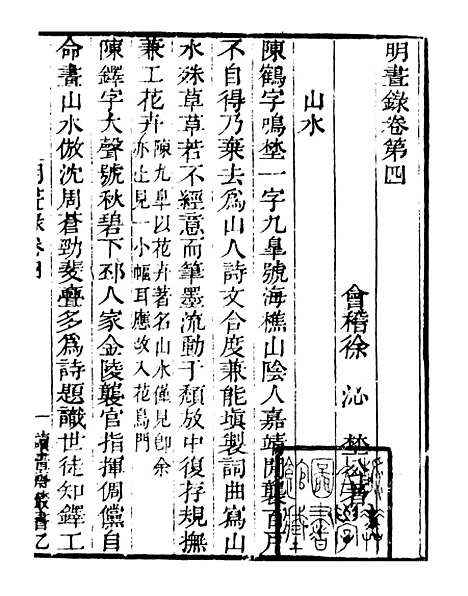 明畫錄卷第四
會稽徐沁埜公著
山水
陳鶴字鳴埜一字九臯號海樵山陰人嘉靖間襲百戶
不自得乃棄去爲山人詩文合度兼能塡製詞曲寫山
水殊草草若不經意而筆墨流動于頹放中復存規撫
兼工花卉陳九臯以花卉著名山水僅見卽余
亦止見一小幅耳應改入花鳥門
陳鐸字大聲號秋碧下邳人家金陵襲官指揮倜儻自
命畫山水倣沈周蒼勁斐亹多爲詩題識世徒知鐸工
明畫錄卷四
一
讀畫齋叢書乙